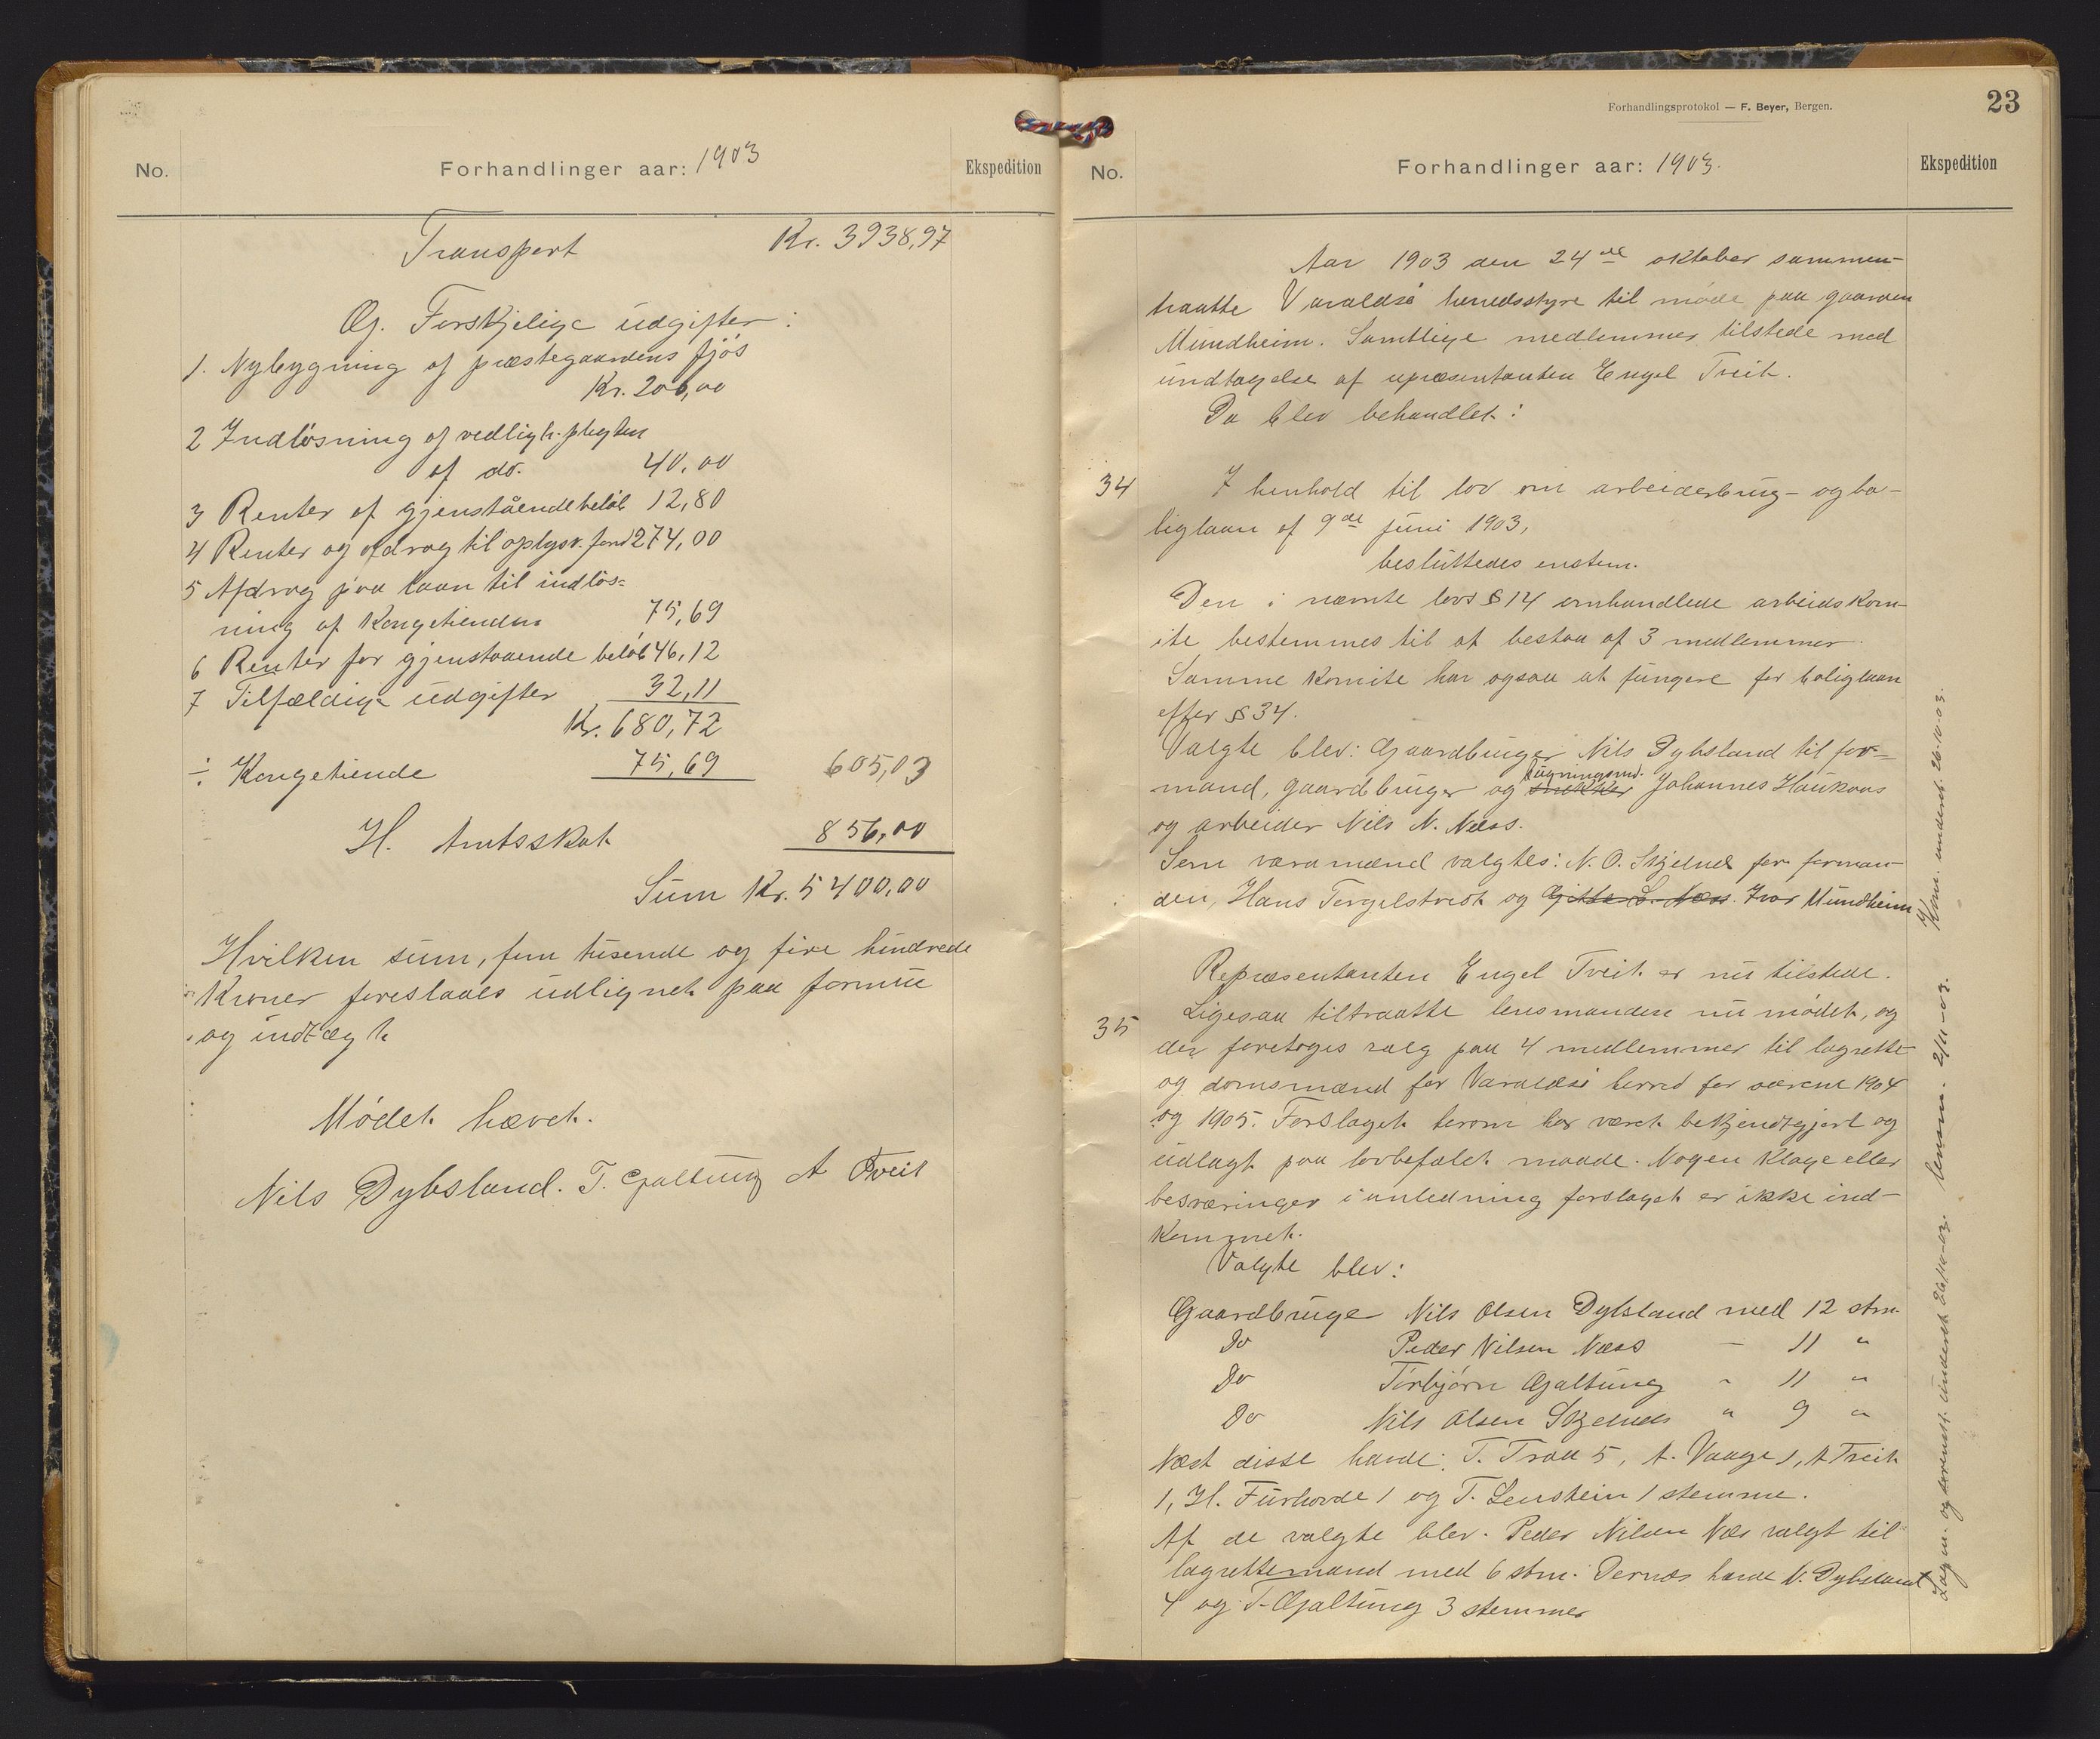 No.
Forhandlinger aar: 1903
Ekspedition
Transport Kr. 3938,97
G. Forskjelige udgifter:
1. Nybygning af præstegaardens fjøs
Kr. 200,00
2 Indløsning af vedligh.pligten
af do. 40,00
3 Renter af gjenstående beløb 12,80
4 Renter og afdrag til oplysn.fond 274,00
5 Afdrag paa laan til indløs=
ning af Kongetienden 75,69
6 Renter for gjenstaaende beløb 46,12
7 Tilfældige udgifter 32,11
Kr. 680,72
÷ Kongetiende 75,69 605,03
H. Amtsskat 856,00
Sum Kr. 5400,00
Hvilken sum, fem tusende og fire hundrede
Kroner foreslaaes udlignet paa formue
og indtægt.
Mødet hævet.
Nils Dybsland. T. Gjaltung A Tveit
Forhandlingsprotokol — F. Beyer, Bergen.
23
No.
Forhandlinger aar: 1903.
Ekspedition
Aar 1903 den 24de oktober sammen-
traatte Varaldsø herredsstyre til møde paa gaarden
Mundheim. Samtlige medlemmer tilstede med
undtagelse af repræsentanten Engel Tveit.
Da blev behandlet:
34 I henhold til lov om arbeiderbrug- og bo-
liglaan af 9de juni 1903,
besluttedes enstem.
Den i nævnte lovs § 14 omhandlede arbeidskom-
ite bestemmes til at bestaa af 3 medlemmer.
Samme Komite har ogsaa at fungere for boliglaan
efter § 34.
Valgte blev: Gaardbruger Nils Dybsland til for=
mand, gaardbruger og snekker bygningsmd. Johannes Haukaas
og arbeider Nils N. Næss.
Som varamænd valgtes: N. O. Skjelnes for forman-
den, Hans Tergelstveit og Gitle L. Næss. Ivar Mundheim
Repræsentanten Engel Tveit er nu tilstede.
35 Ligesaa tiltraatte lensmanden nu mødet, og
der foretoges valg paa 4 medlemmer til lagrette
og domsmænd for Varaldsø herred for aarene 1904
og 1905. Forslaget herom har været bekjendtgjort og
udlagt paa lovbefalet maade. Nogen Klage eller
besværinger i anledning forslaget er ikke ind-
kommet.
Valgte blev:
Gaardbruger Nils Olsen Dybsland med 12 stm.
Do Peder Nilsen Næss — 11 "
Do Torbjørn Gjaltung " 11 "
Do Nils Olsen Skjelnes " 9 "
Næst disse havde: T. Traa 5, A. Vaage 1, A Tveit
1, H. Furhovde 1 og T. Lenstein 1 stemme.
Af de valgte blev. Peder Nilsen Næs valgt til
lagrettemand med 6 stm. Dernæs havde N. Dybsland
4 og T. Gjaltung 3 stemmer
Lagm. og sorenskr. underrt. 26/10-03. lensm. 2/11-03. Kom. underet. 26-10-03.